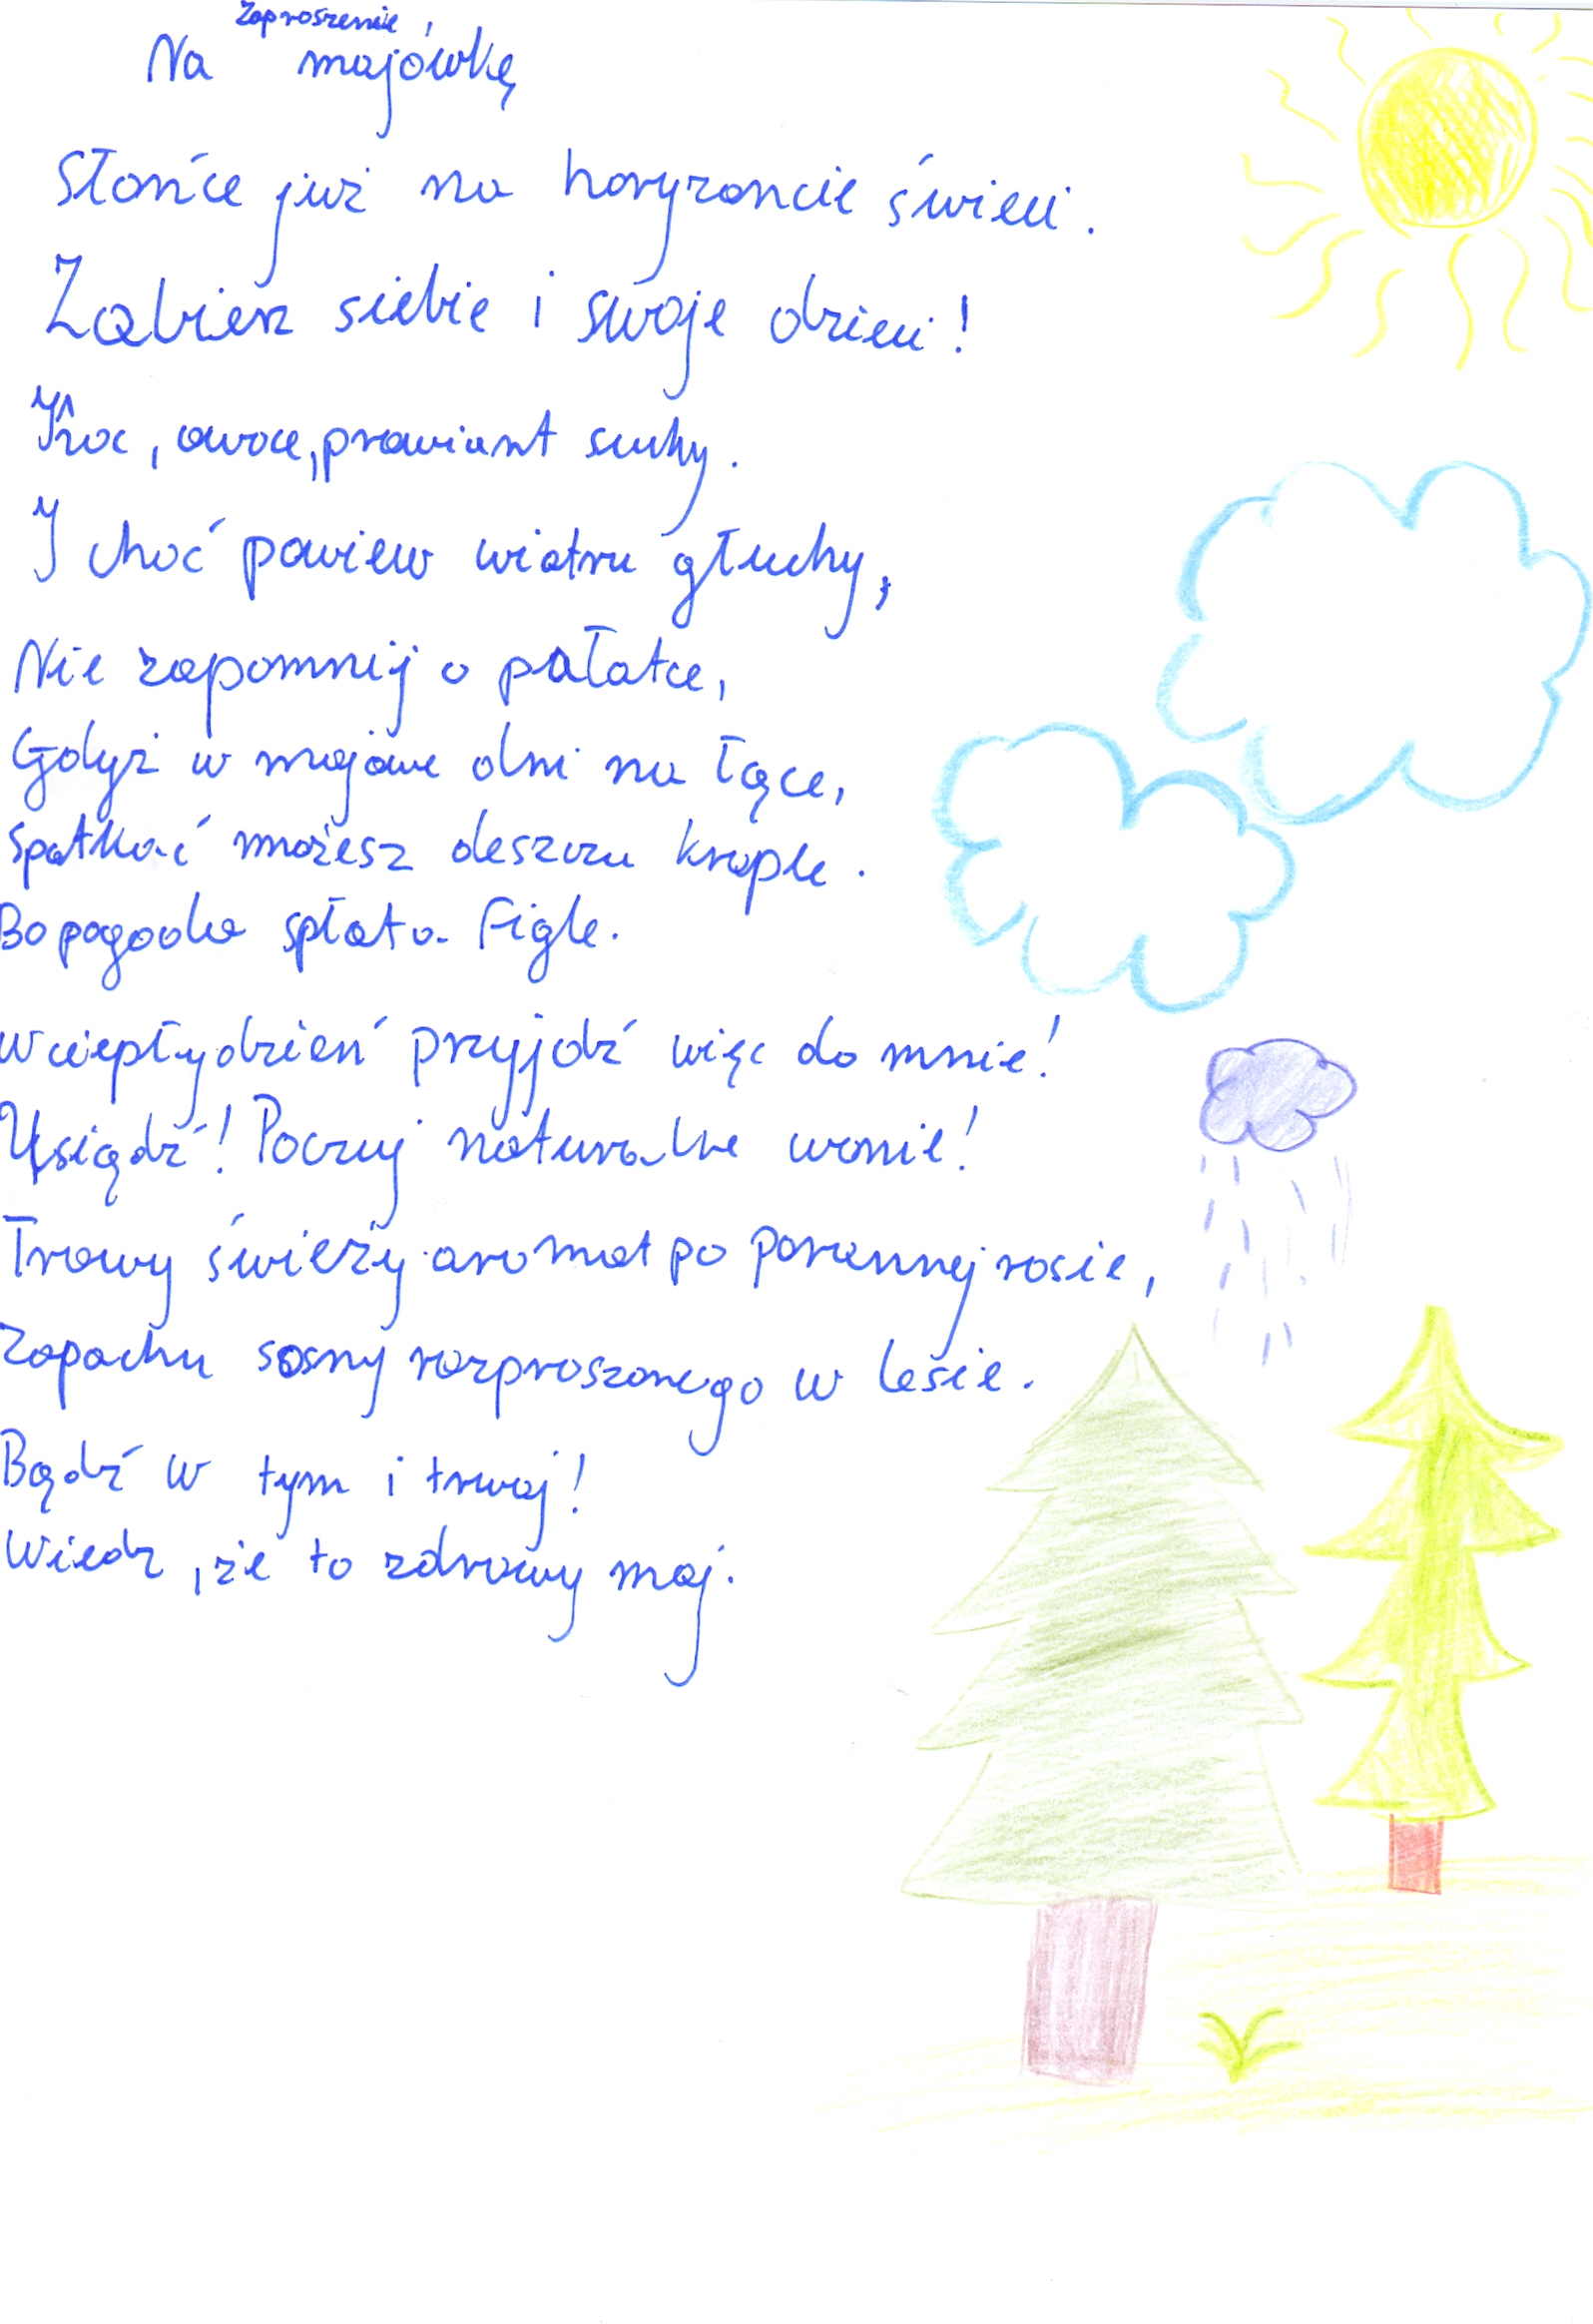 Zaproszenie
Na majówkę
Słońce już na horyzoncie świeci.
Zabierz siebie i swoje dzieci!
Koc, owoce, prowiant suchy.
I choć powiew wiatru głuchy,
Nie zapomnij o pałatce,
Gdyż w majowe dni na łące,
Spotkać możesz deszczu krople.
Bo pogoda spłata figle.
W ciepły dzień przyjdź więc do mnie!
Usiądź! Poczuj naturalne wonie!
Trawy świeży aromat po porannej rosie,
Zapachu sosny rozproszonego w lesie.
Bądź w tym i trwaj!
Wiedz, że to zdrowy maj.